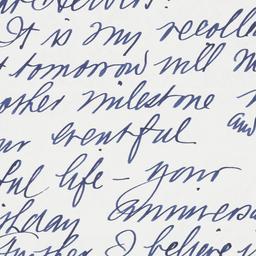 It is my recolle
tomorrow will m
other milestone
ur eventful and
ful life – your
thday anniversa
Another I believe i